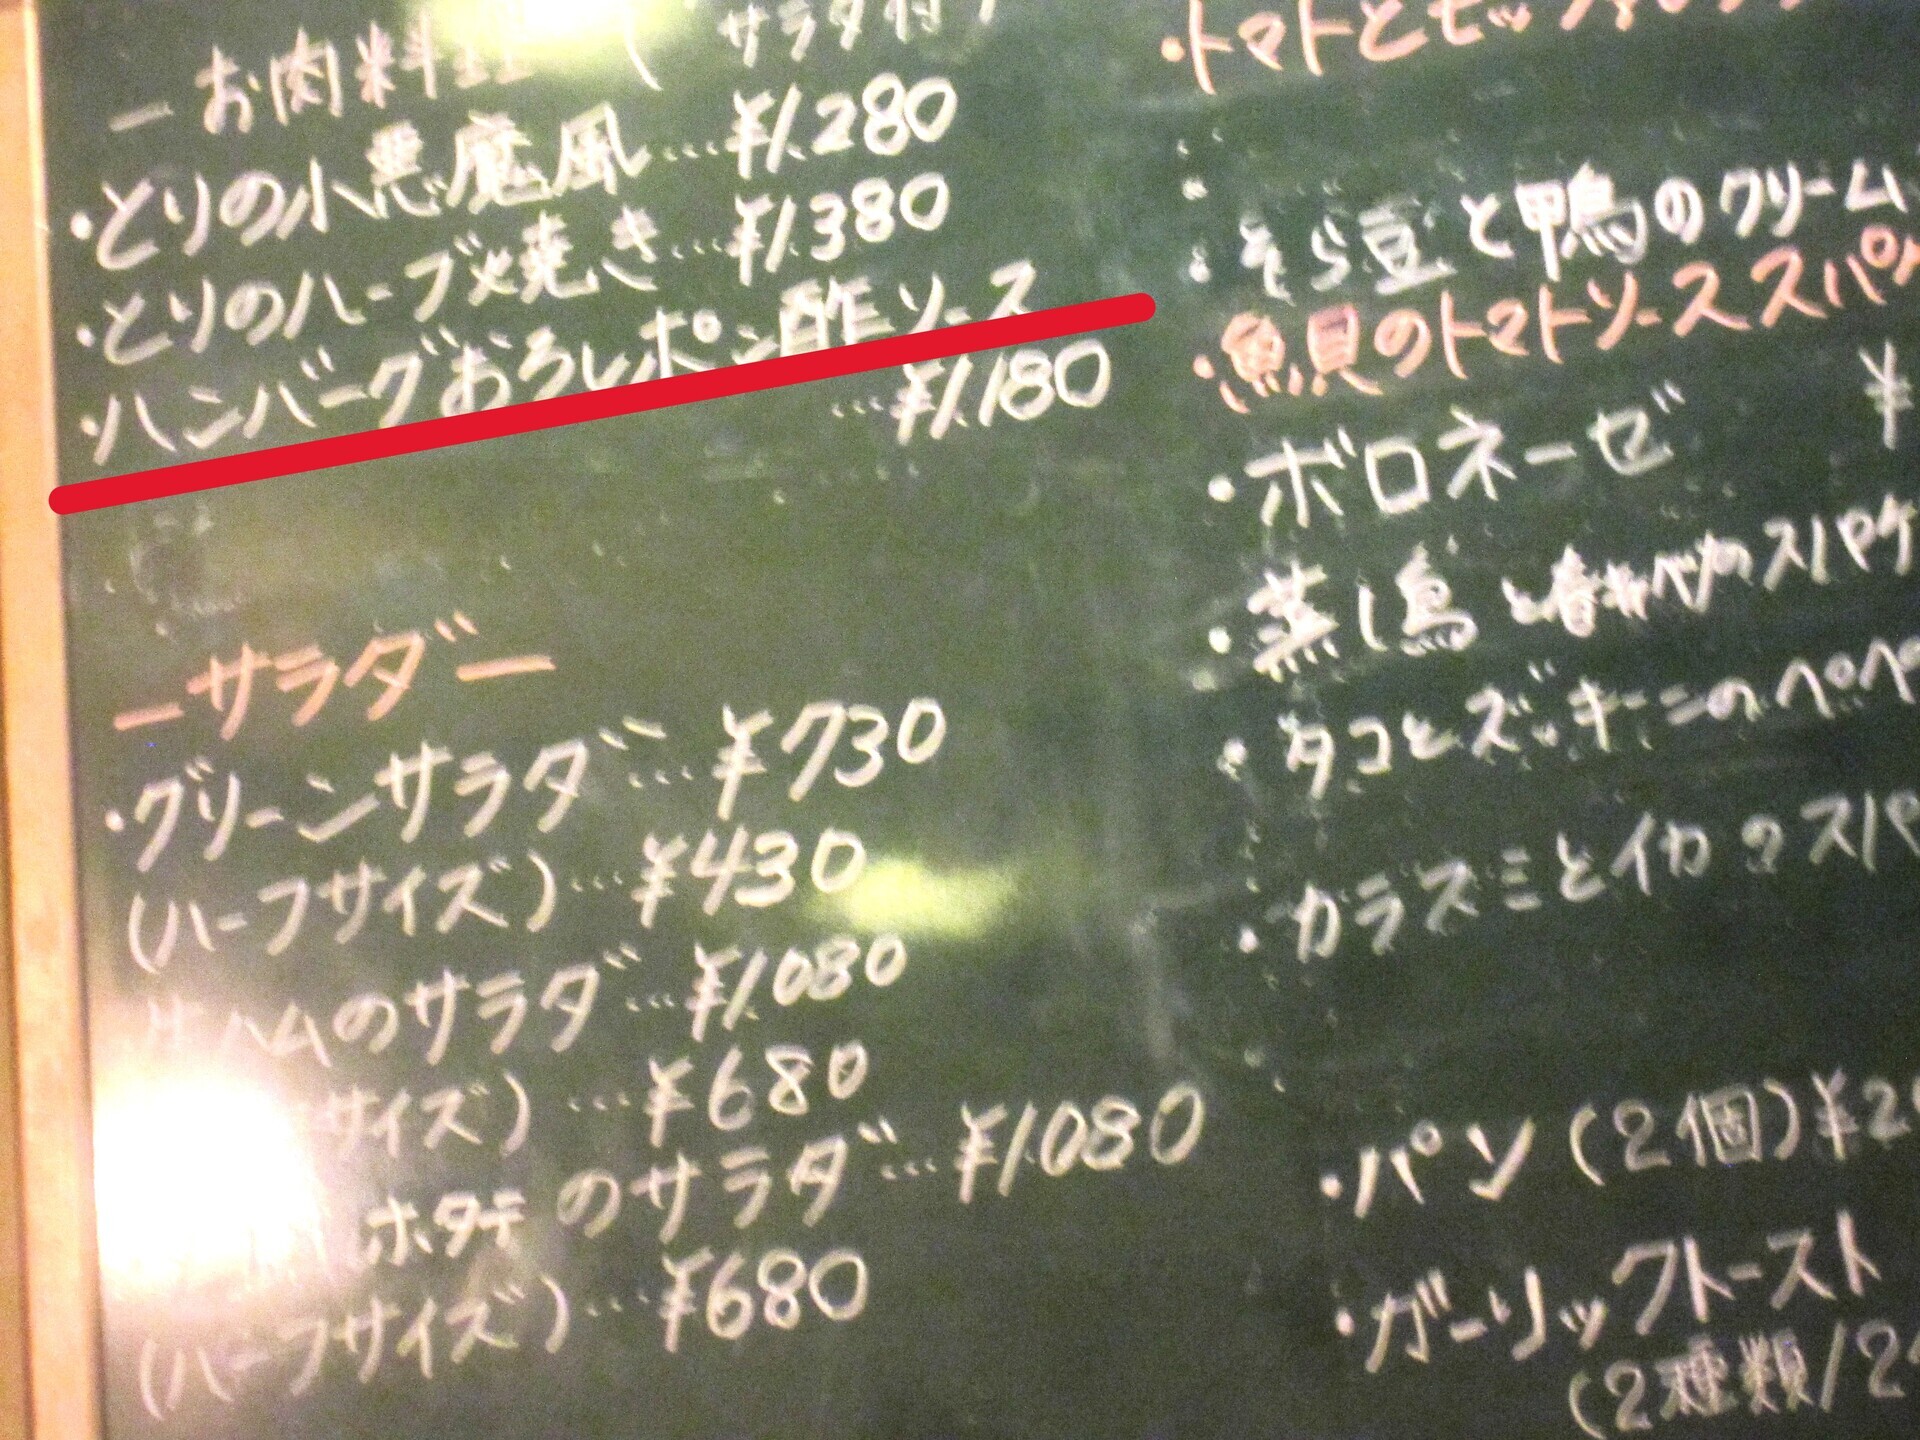 ーお肉料理
サラダ付
・とりの小悪魔風…¥1.280
・とりのハーブ焼き…¥1.380
・ハンバーグおろしポン酢ソース
…¥1.180
ーサラダー
・グリーンサラダ…¥730
(ハーフサイズ)…¥430
ハムのサラダ…¥1080
サイズ)…¥680
ホタテのサラダ…¥1.080
(ハーフサイズ)…¥680
・トマトと
・そら豆と鴨のクリーム
・魚貝のトマトソーススパ
・ボロネーゼ ¥
・蒸し鳥と春キャベツのスパゲ
・タコとズッキーニのペペ
・カラスミとイカのスパ
・パン(2個)¥2
・ガーリックトースト
(2種類/2